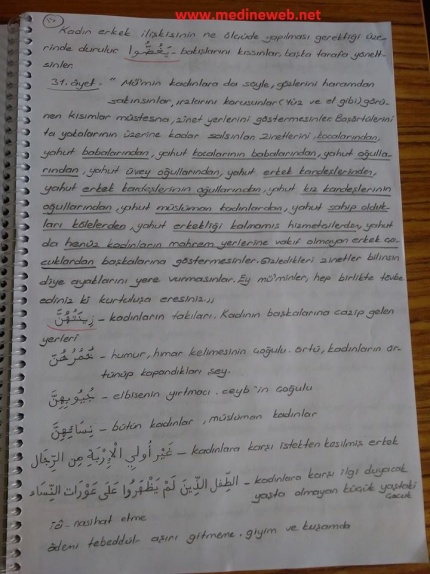 www.medineweb.net
Kadın erkek ilişkisinin ne ölçüde yapılması gerektiği üze-
rinde durulur يَغُضُّوا - bakışlarını kıssınlar, başka tarafa yönelt-
sinler.
31. âyet. " Mü'min kadınlara da söyle, gözlerini haramdan
sakınsınlar, ırzlarını korusunlar (Yüz ve el gibi) görü-
nen kısımlar müstesna, zinet yerlerini göstermesinler. Başörtülerini
ta yakalarının üzerine kadar salsınlar. Zinetlerini, kocalarından,
yahut babalarından, yahut kocalarının babalarından, yahut oğulla-
rından, yahut üvey oğullarından, yahut erkek kardeşlerinden,
yahut erkek kardeşlerinin oğullarından, yahut kız kardeşlerinin
oğullarından, yahut müslüman kadınlardan, yahut sahip olduk-
ları kölelerden, yahut erkekliği kalmamış hizmetçilerden, yahut
da henüz kadınların mahrem yerlerine vakıf olmayan erkek ço-
cuklardan başkalarına göstermesinler. Gizledikleri zinetler bilinsin
diye ayaklarını yere vurmasınlar. Ey mü'minler, hep birlikte tövbe
ediniz ki kurtuluşa eresiniz.,,
زِينَتَهُنَّ - kadınların takıları. Kadının başkalarına cazip gelen
yerleri
خُمُرُهُنَّ - humur, hımar kelimesinin çoğulu. örtü, kadınların ör-
tünüp kapandıkları şey.
جُيُوبِهِنَّ - elbisenin yırtmacı. ceyb'in çoğulu
نِسَائِهِنَّ - bütün kadınlar, müslüman kadınlar
غَيْرِ أُولِي الْإِرْبَةِ مِنَ الرِّجَالِ - kadınlara karşı istekten kesilmiş erkek
الطِّفْلِ الَّذِينَ لَمْ يَظْهَرُوا عَلَى عَوْرَاتِ النِّسَاءِ - kadınlara karşı ilgi duyacak
yaşta olmayan küçük yaştaki
çocuk
- nasihat etme
tebeddül- aşırı gitmeme. giyim ve kuşamda